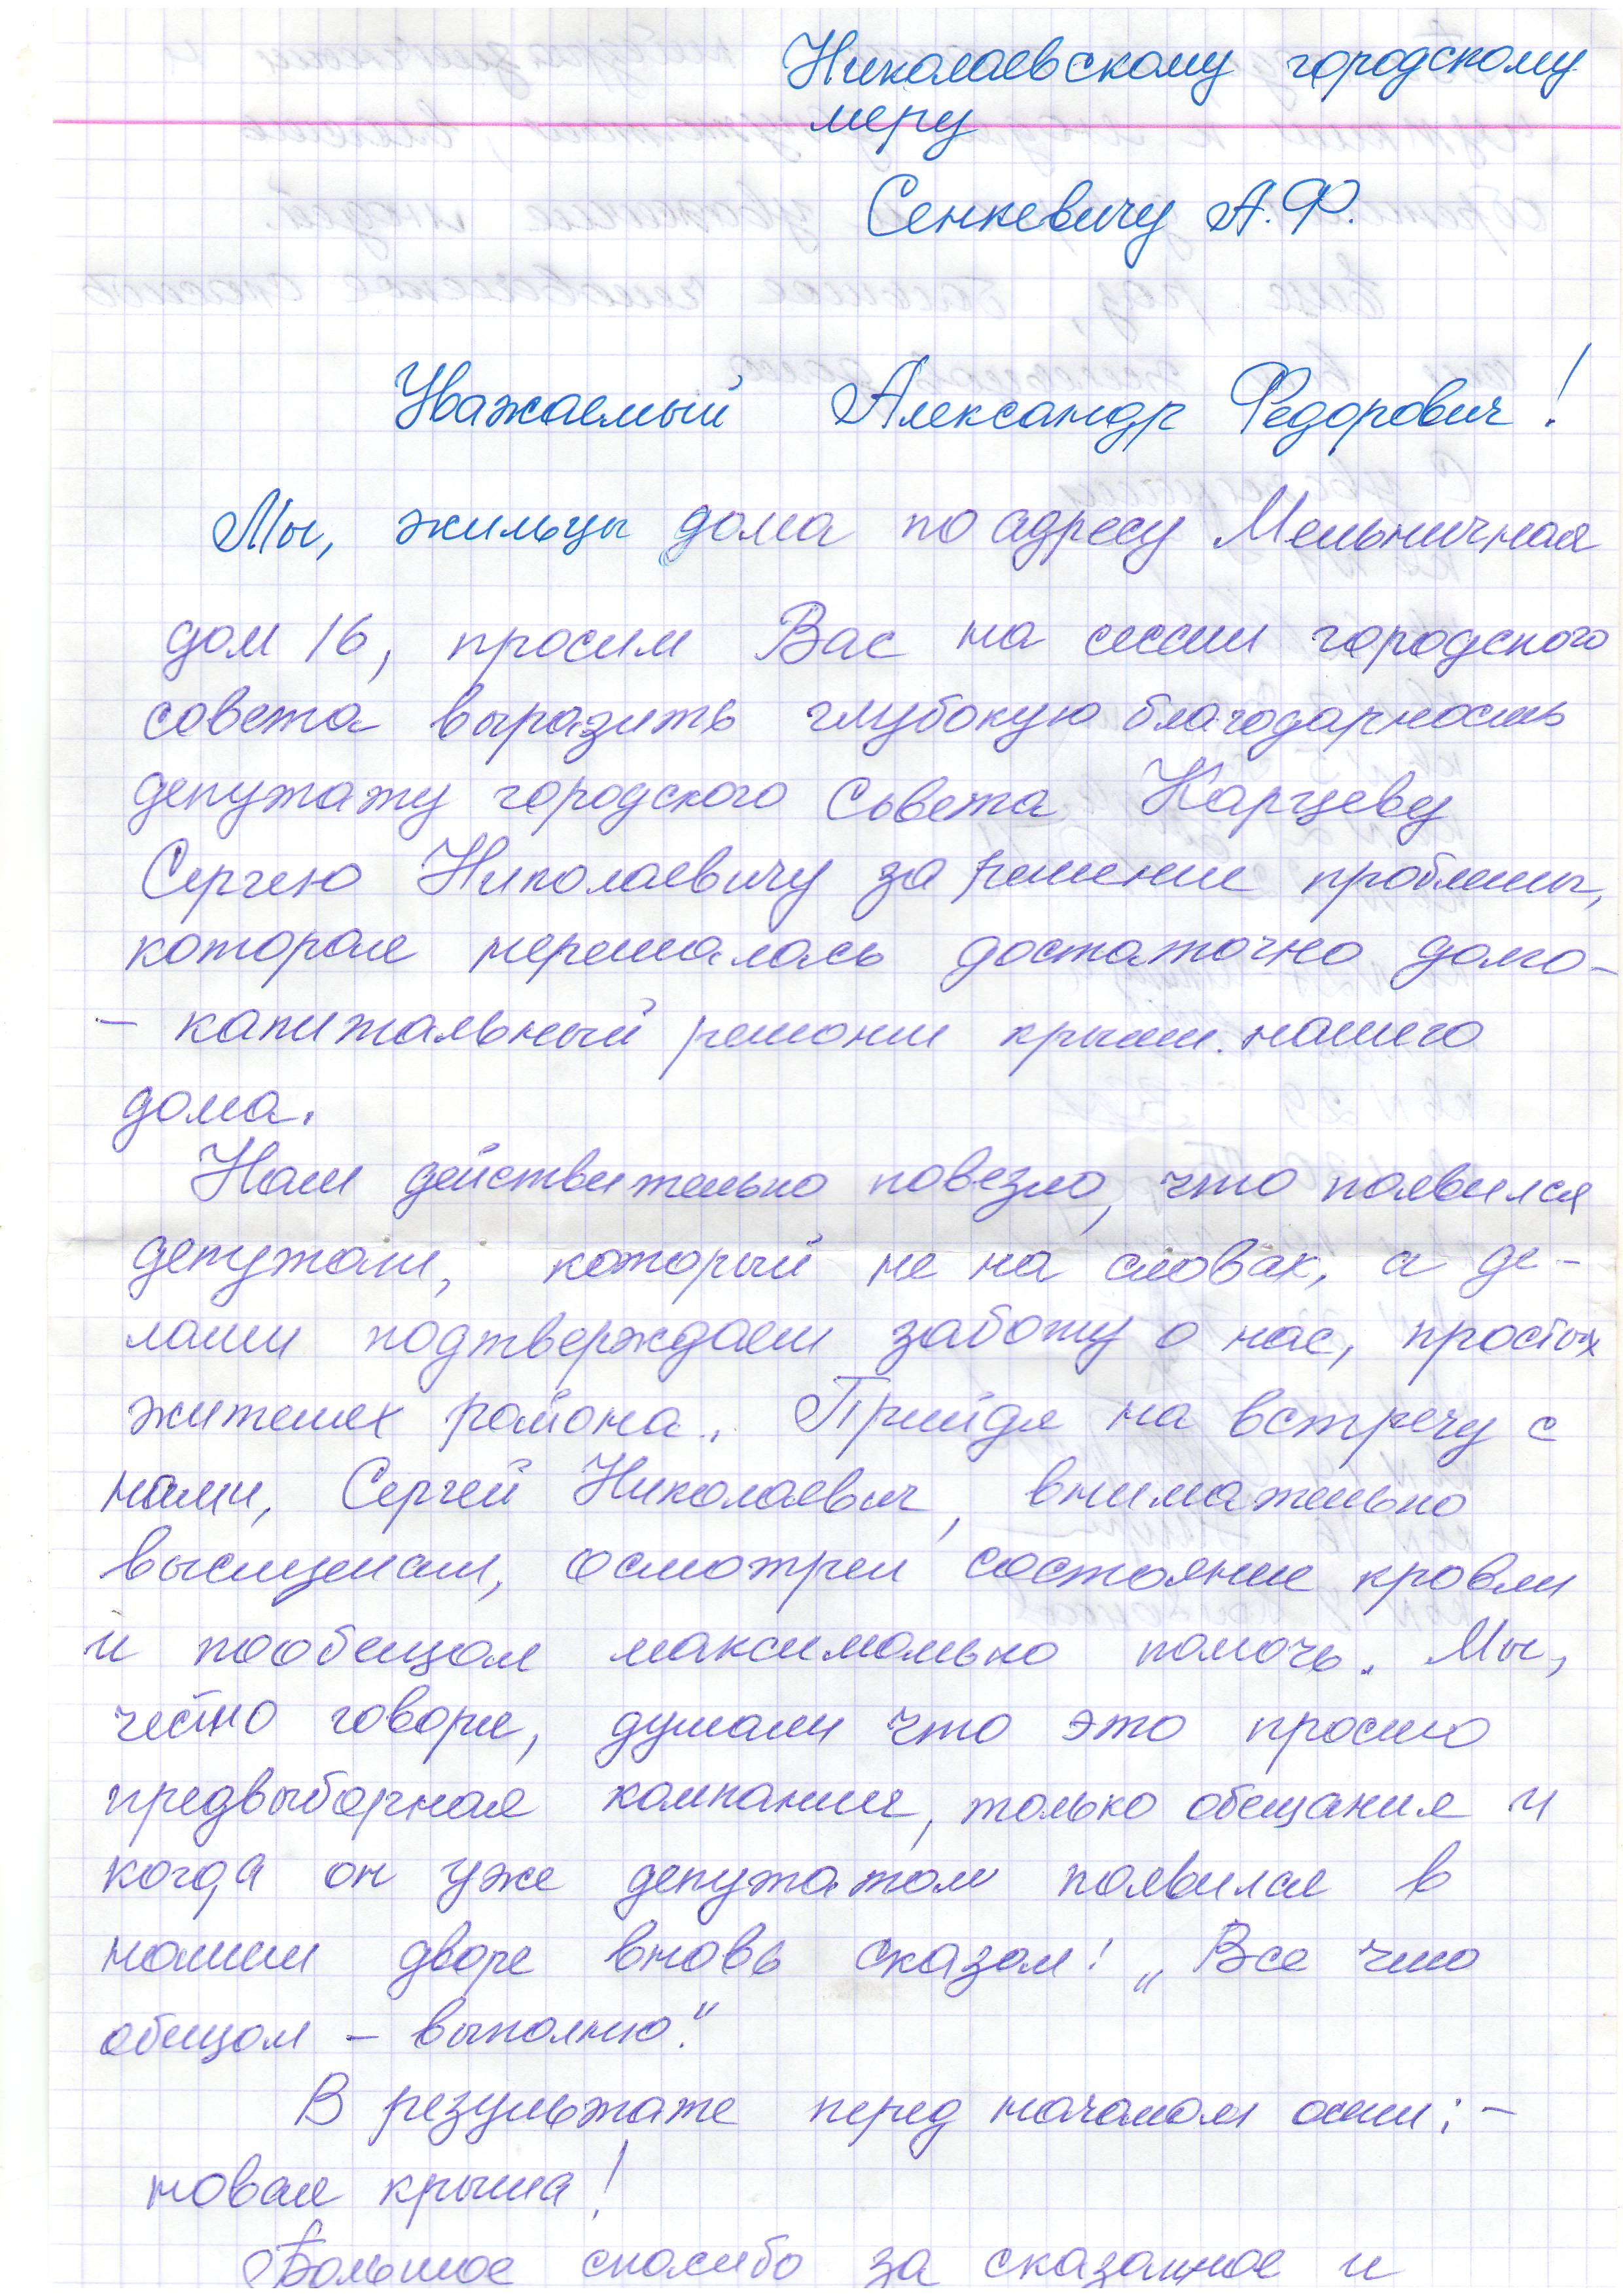 Николаевскому городскому
меру
Сенкевичу А.Ф.
Уважаемый Александр Федорович!
Мы, жильцы дома по адресу Мельничная
дом 16, просим Вас на сессии городского
совета выразить глубокую благодарность
депутату городского Совета Карцеву
Сергею Николаевичу за решение проблемы,
которая нерешалась достаточно долго-
- капитальный ремонт крыши нашего
дома.
Нам действительно повезло, что появился
депутат, который не на словах, а де-
лами подтверждает заботу о нас, простых
жителях района. Прийдя на встречу с
нами, Сергей Николаевич, внимательно
выслушал, осмотрел состояние кровли
и пообещал максимально помочь. Мы,
честно говоря, думали что это просто
предвыборная компания, только обещания и
когда он уже депутатом появился в
нашем дворе вновь сказал: „Все что
обещал - выполню."
В результате перед началом осени: -
новая крыша!
Большое спасибо за сказанное и